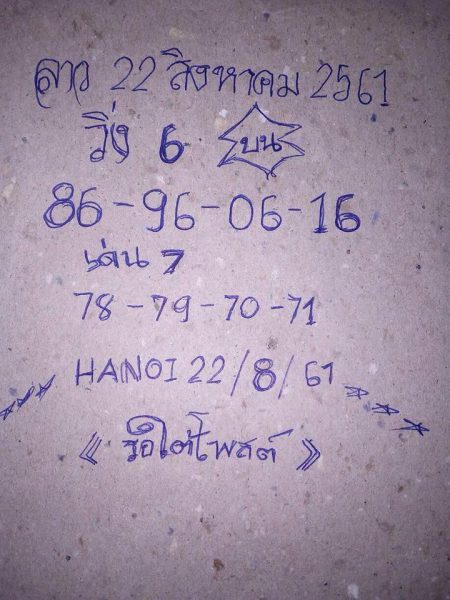 ลาว 22 สิงหาคม 2561
วิ่ง 6 บน
86-96-06-16
เด่น 7
78-79-70-71
HANOI 22/8/61
《 รอใต้โพสต์ 》